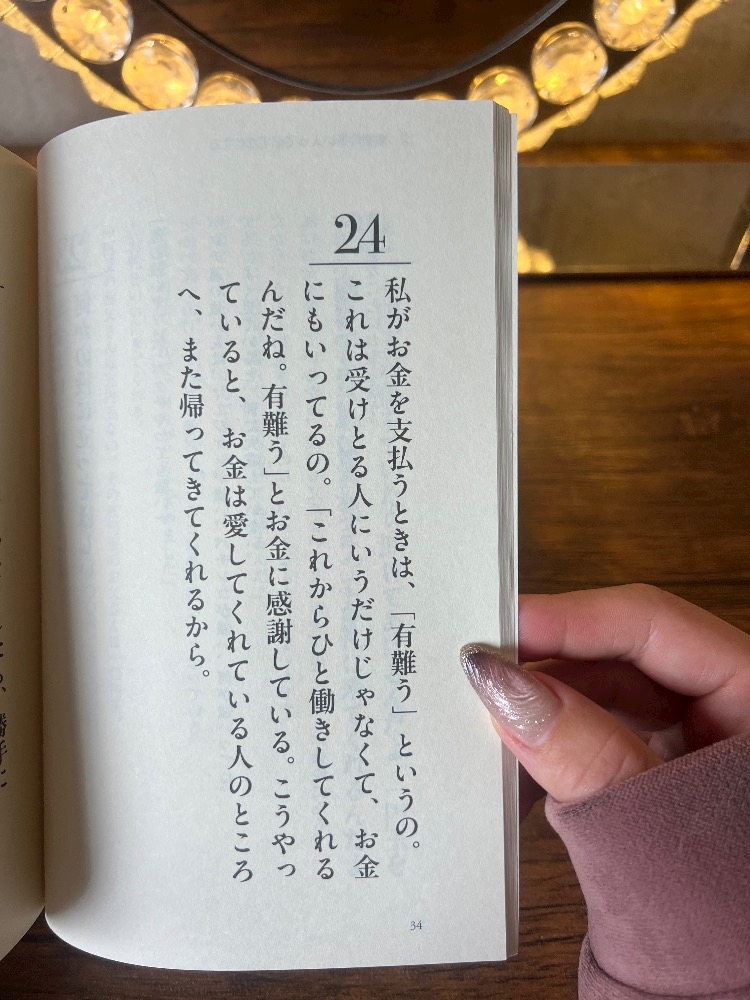 24
私がお金を支払うときは、「有難う」というの。
これは受けとる人にいうだけじゃなくて、お金
にもいってるの。「これからひと働きしてくれる
んだね。有難う」とお金に感謝している。こうやっ
ていると、お金は愛してくれている人のところ
へ、また帰ってきてくれるから。
34